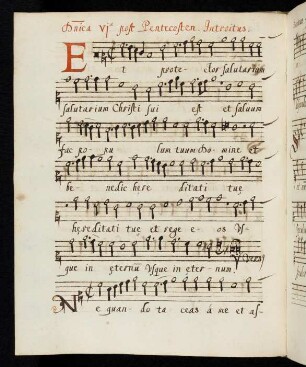 Dnica vjᵃ post Pentecosten. Introitus.
Et protector salutarium
salutarium Christi sui est et salvum
fac popu lum tuum Domine et
be nedic here ditati tuę
hęreditati tuę et rege eos us
que in eternū Usque in eternum.
Ne quando taceas à me et as-